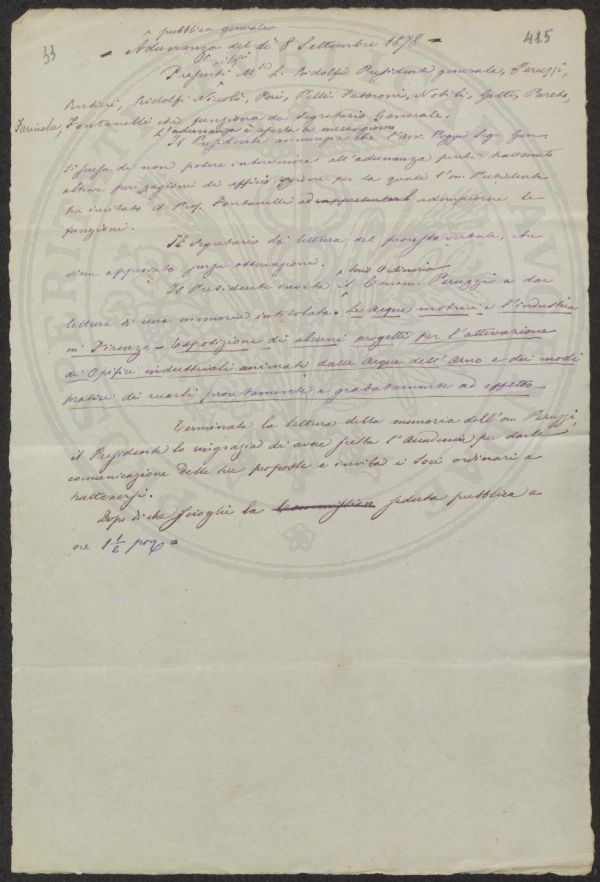 33
415
pubblica generale
- Adunanza del dì 8 Settembre 1878 -
Presenti i Sigri Mse L. Ridolfi Presidente generale, Peruzzi,
Rubieri, Ridolfi Nicolò, Pelli Fabbroni, Nobili, Gotti, Pareto,
Farinola, Fontanelli che funziona da Segretario Generale.
L'adunanza è aperta a mezzogiorno
Il Presidente annunzia che l'avv. Poggi Segr. Gen.
si scusa di non potere intervenire all'adunanza perchè trattenuto
altrove per ragioni di ufficio, ragione per la quale l'on. Presidente
ha invitato il Prof. Fontanelli ad rappresentarlo adempierne le
funzioni.
Il Segretario dà lettura del processo verbale, che
viene approvato senza osservazioni.
Il Presidente invita il Socio Ordinario Comm. Peruzzi a dar
lettura di una memoria intitolata. Le acque motrici e l'industria
in Firenze - Esposizione di alcuni progetti per l'attivazione
di Opifici industriali animati dalle Acque dell'Arno e dei modi
pratici di recarli prontamente e gradatamente ad effetto -
Terminata la lettura della memoria dell'on. Peruzzi,
il Presidente lo ringrazia di avere scelta l'Accademia per darle
comunicazione delle sue proposte e invita i soci ordinari a
trattenersi.
Dopo di che scioglie la Commissione seduta pubblica a
ore 1 1/2 pom.